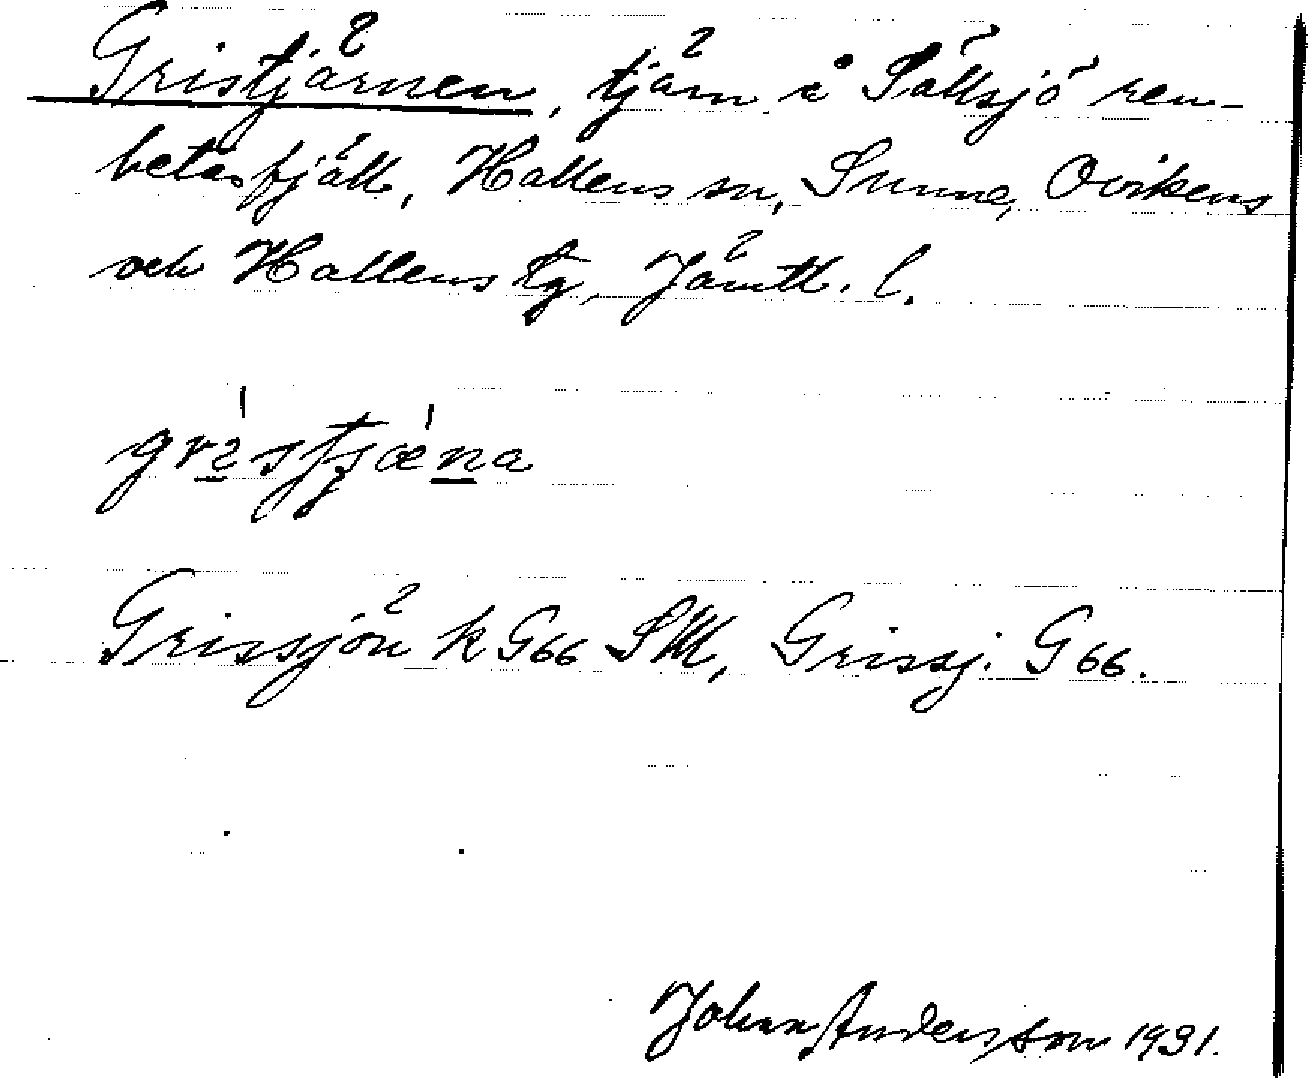 Gristjärnen, tjärn i Sällsjö ren-
betesfjäll, Hallens sn, Sunne, Ovikens
och Hallens tg, Jämtl. l.
Grissjön k G66 SM, Grissj. G 66.
Johan Andersson 1931.